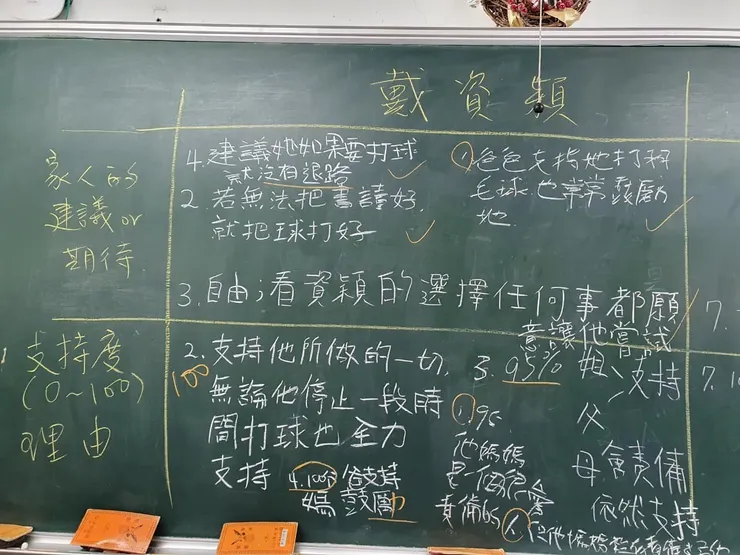 戴資穎
家人的
建議or
期待
4.建議她如果要打球
就沒有退路
2.若無法把書讀好,
就把球打好
①爸爸支持她打羽
毛球,也常常鼓勵
她
3.自由;看資穎的選擇任何事都願
意讓他嘗試
支持度
(0~100)
理由
2.支持他所做的一切,
100
無論他停止一段時
間打球也全力
支持
4.100分 爸支持
媽 鼓勵
3.95%
姐:支持
父
母會責備
依然支持
1.95
他媽媽
是一個很愛
責備的
7.
7.10